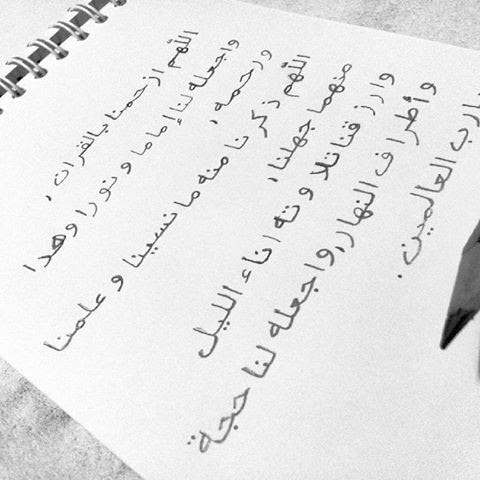 اللهم ارحمنا بالقران ،
واجعله لنا إماما و نورا وهدا
ورحمه ،
اللهم ذكرنا منه ما نسينا و علمنا
منهما جهلنا،
وارزقنا تلاوته اناء الليل
وأطراف النهار، واجعله لنا حجة
يارب العالمين.